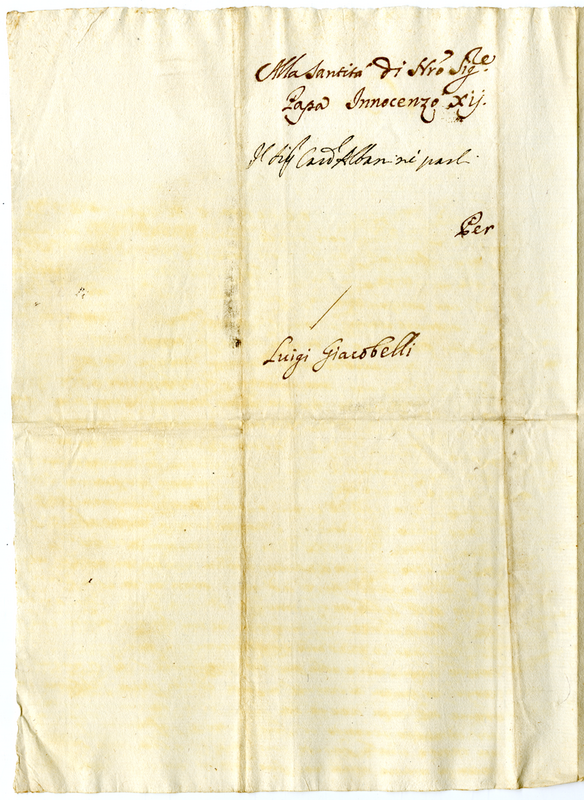 Alla Santità di Nro Sigre
Papa Innocenzo Xij.
Il Sig Card Albani ne parli
Per
Luigi Giacobelli